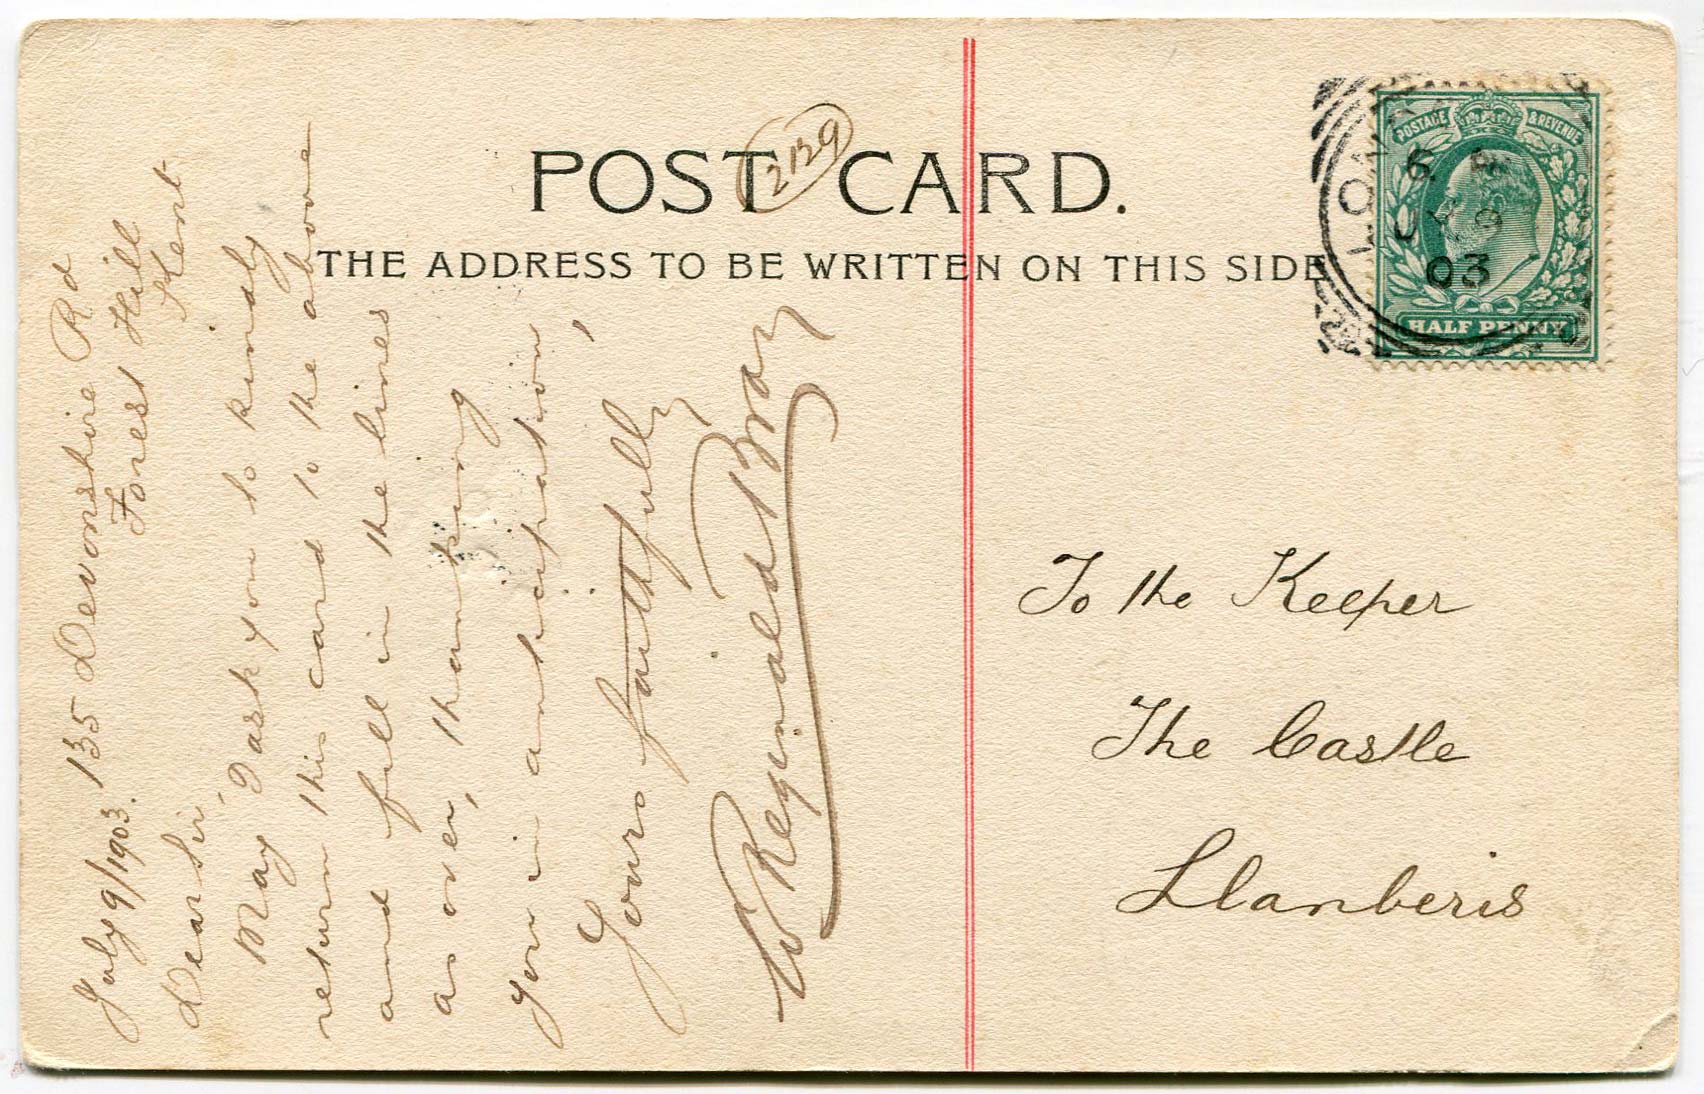 POST CARD.
2129
THE ADDRESS TO BE WRITTEN ON THIS SIDE
POSTAGE & REVENUE
HALF PENNY
LON
6
JY 9
03
July 9/1903. 135 Devonshire Rd
Forest Hill
Kent
Dear Sir,
May I ask you to kindly
return this card to the above
and fill in the lines
as over, thanking
you in anticipation,
Yours faithfully
W Reginald Bray
To the Keeper
The Castle
Llanberis